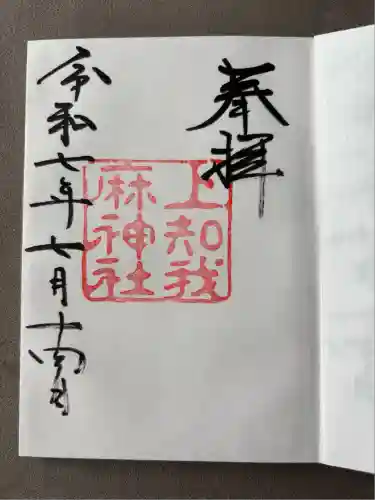 奉拝
上知我
麻神社
令和七年七月十日